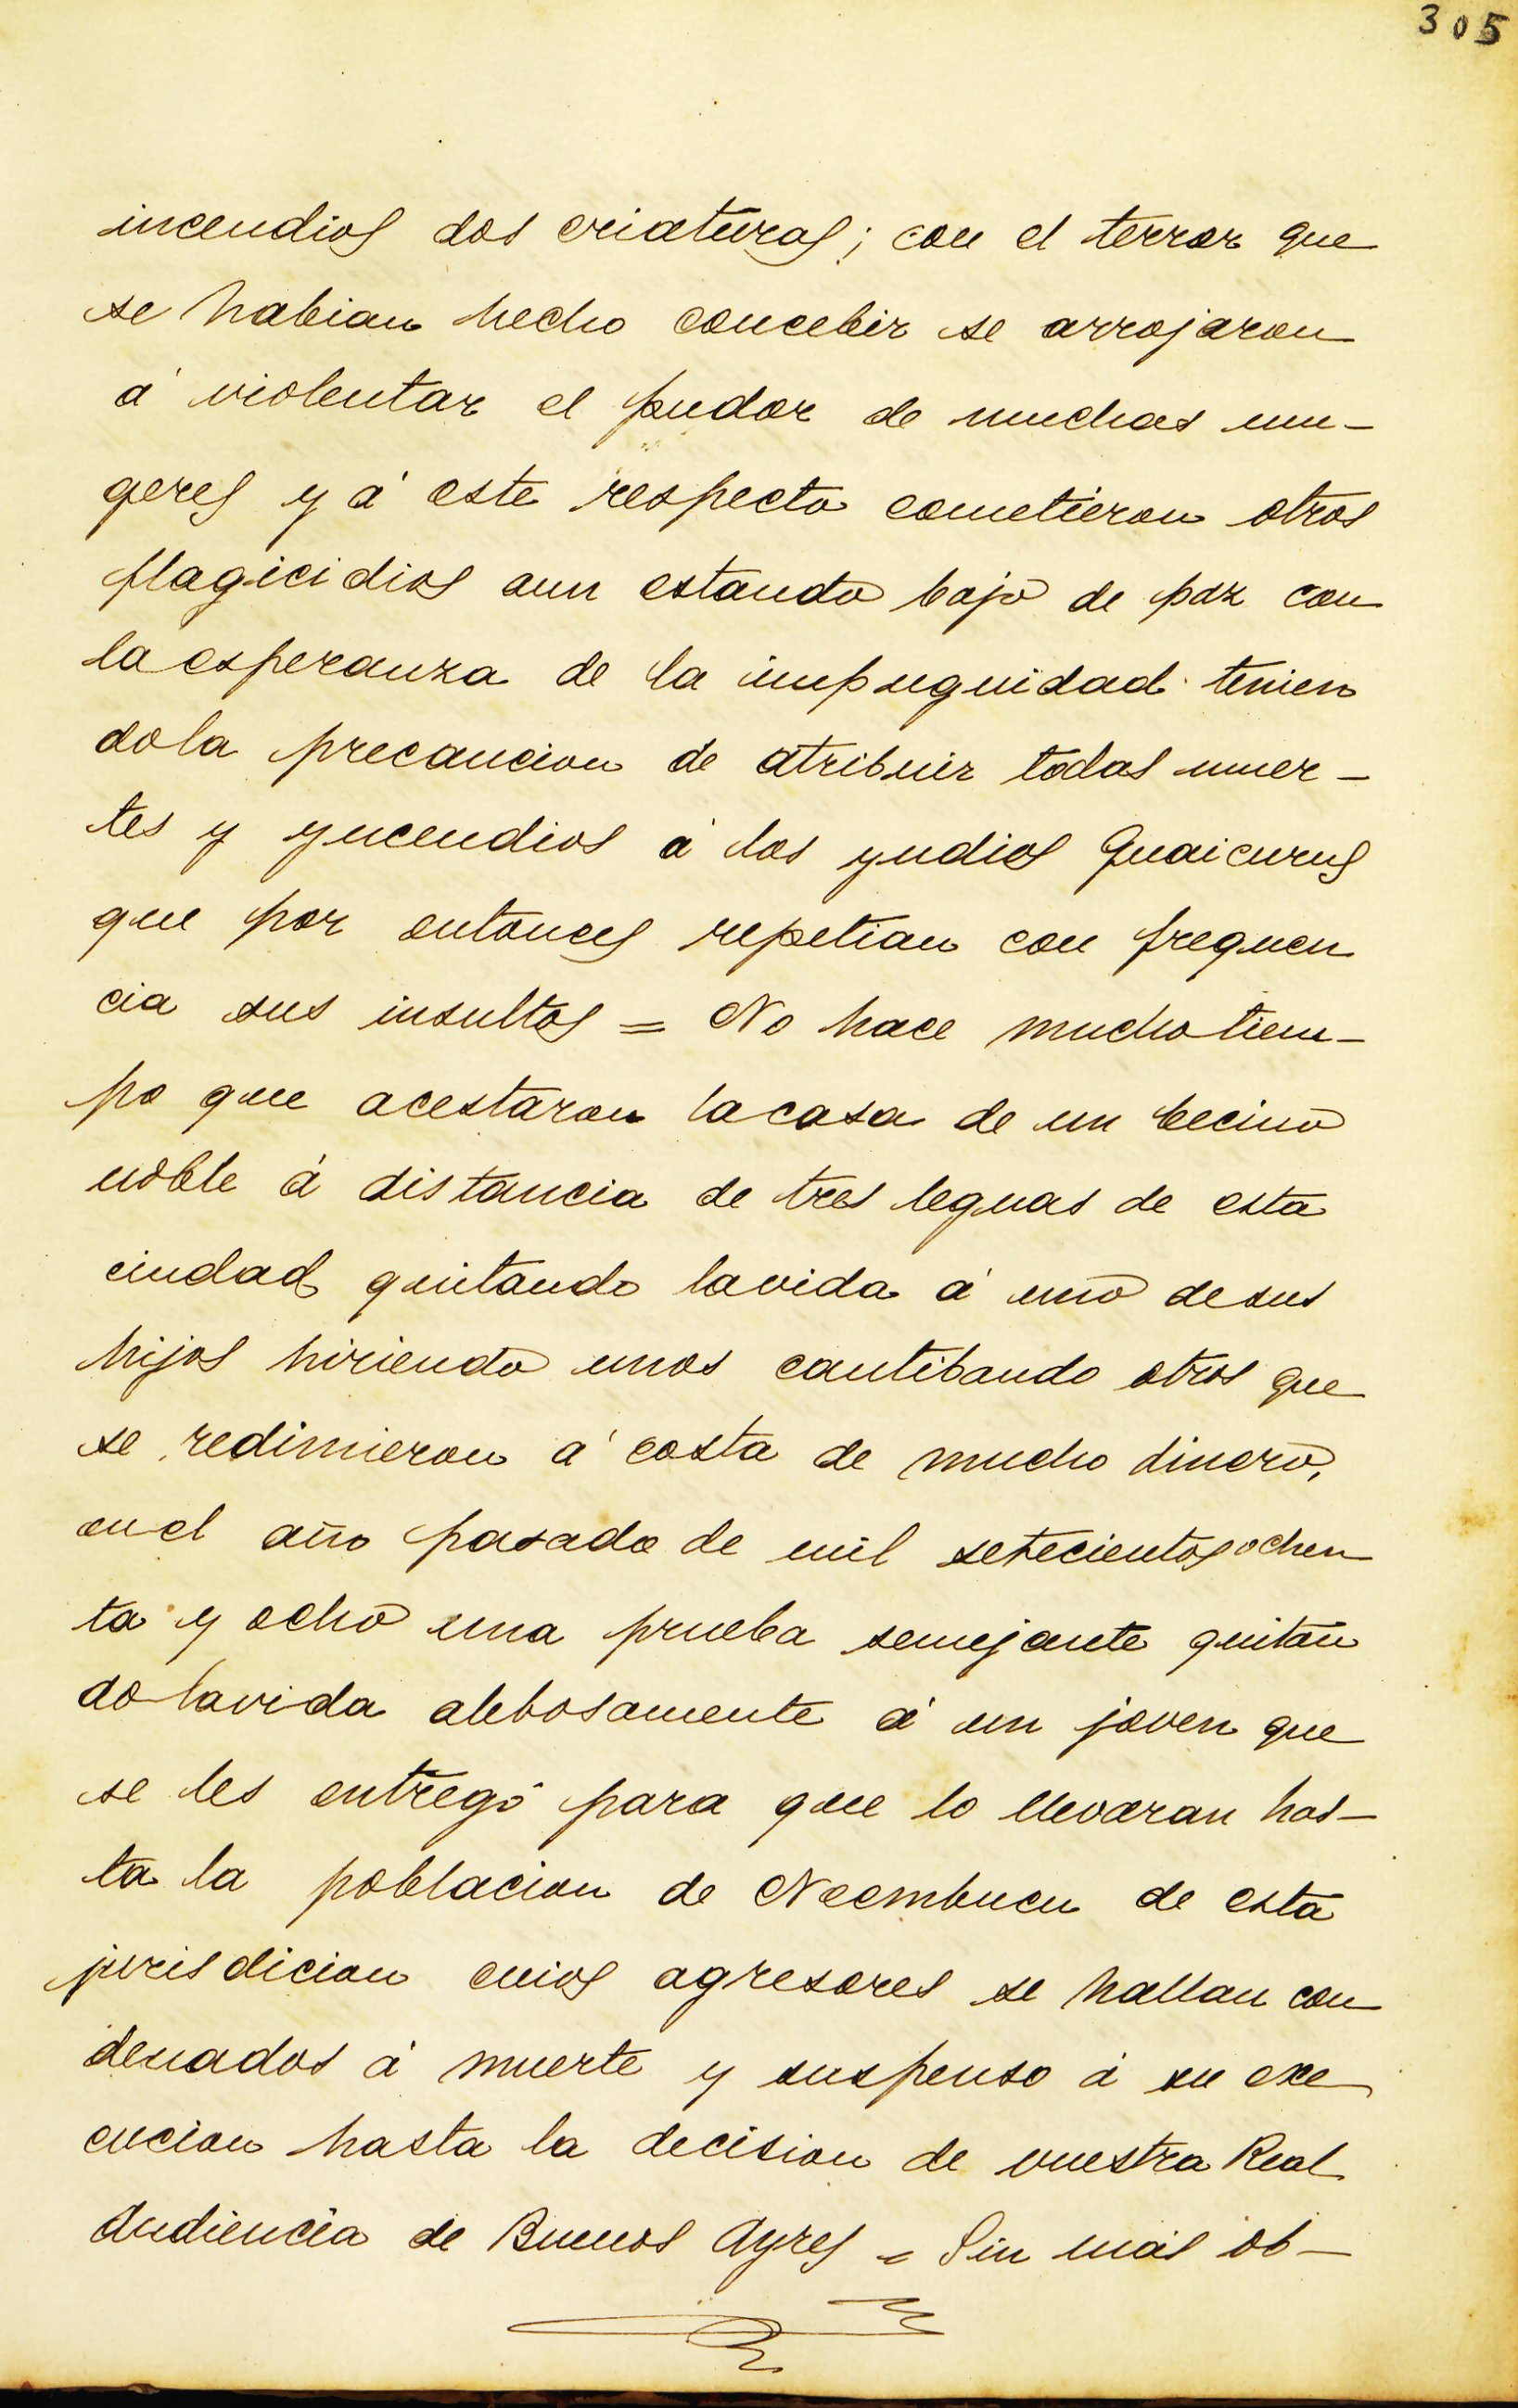 305
incendios dos criaturas; con el terror que
se habian hecho concebir se arrojaron
á violentar el pudor de muchas mu-
geres y á este respecto cometieron otros
flagicidios aun estando bajo de paz con
la esperanza de la impugnidad tenien
dola precaucion de atribuir todas muer-
tes y yncendios á los yndios Guaicurus
que por entonces repetian con frequen
cia sus insultos = No hace mucho tiem-
po que acestaron la casa de un becino
noble á distancia de tres leguas de esta
ciudad quitando lavida á uno de sus
hijos hiriendo unos cautibando otros que
se redimieron á costa de mucho dinero,
en el año pasado de mil setecientos ochen
ta y ocho una prueba semejante quitan
do lavida alebosamente á un joven que
se les entregó para que lo llevaran has-
ta la poblacion de Neembucu de esta
jurisdicion cuios agresores se hallan con
denados á muerte y suspenso á su exe
cucion hasta la decision de vuestra Real
Audiencia de Buenos Ayres = Sin más ob-